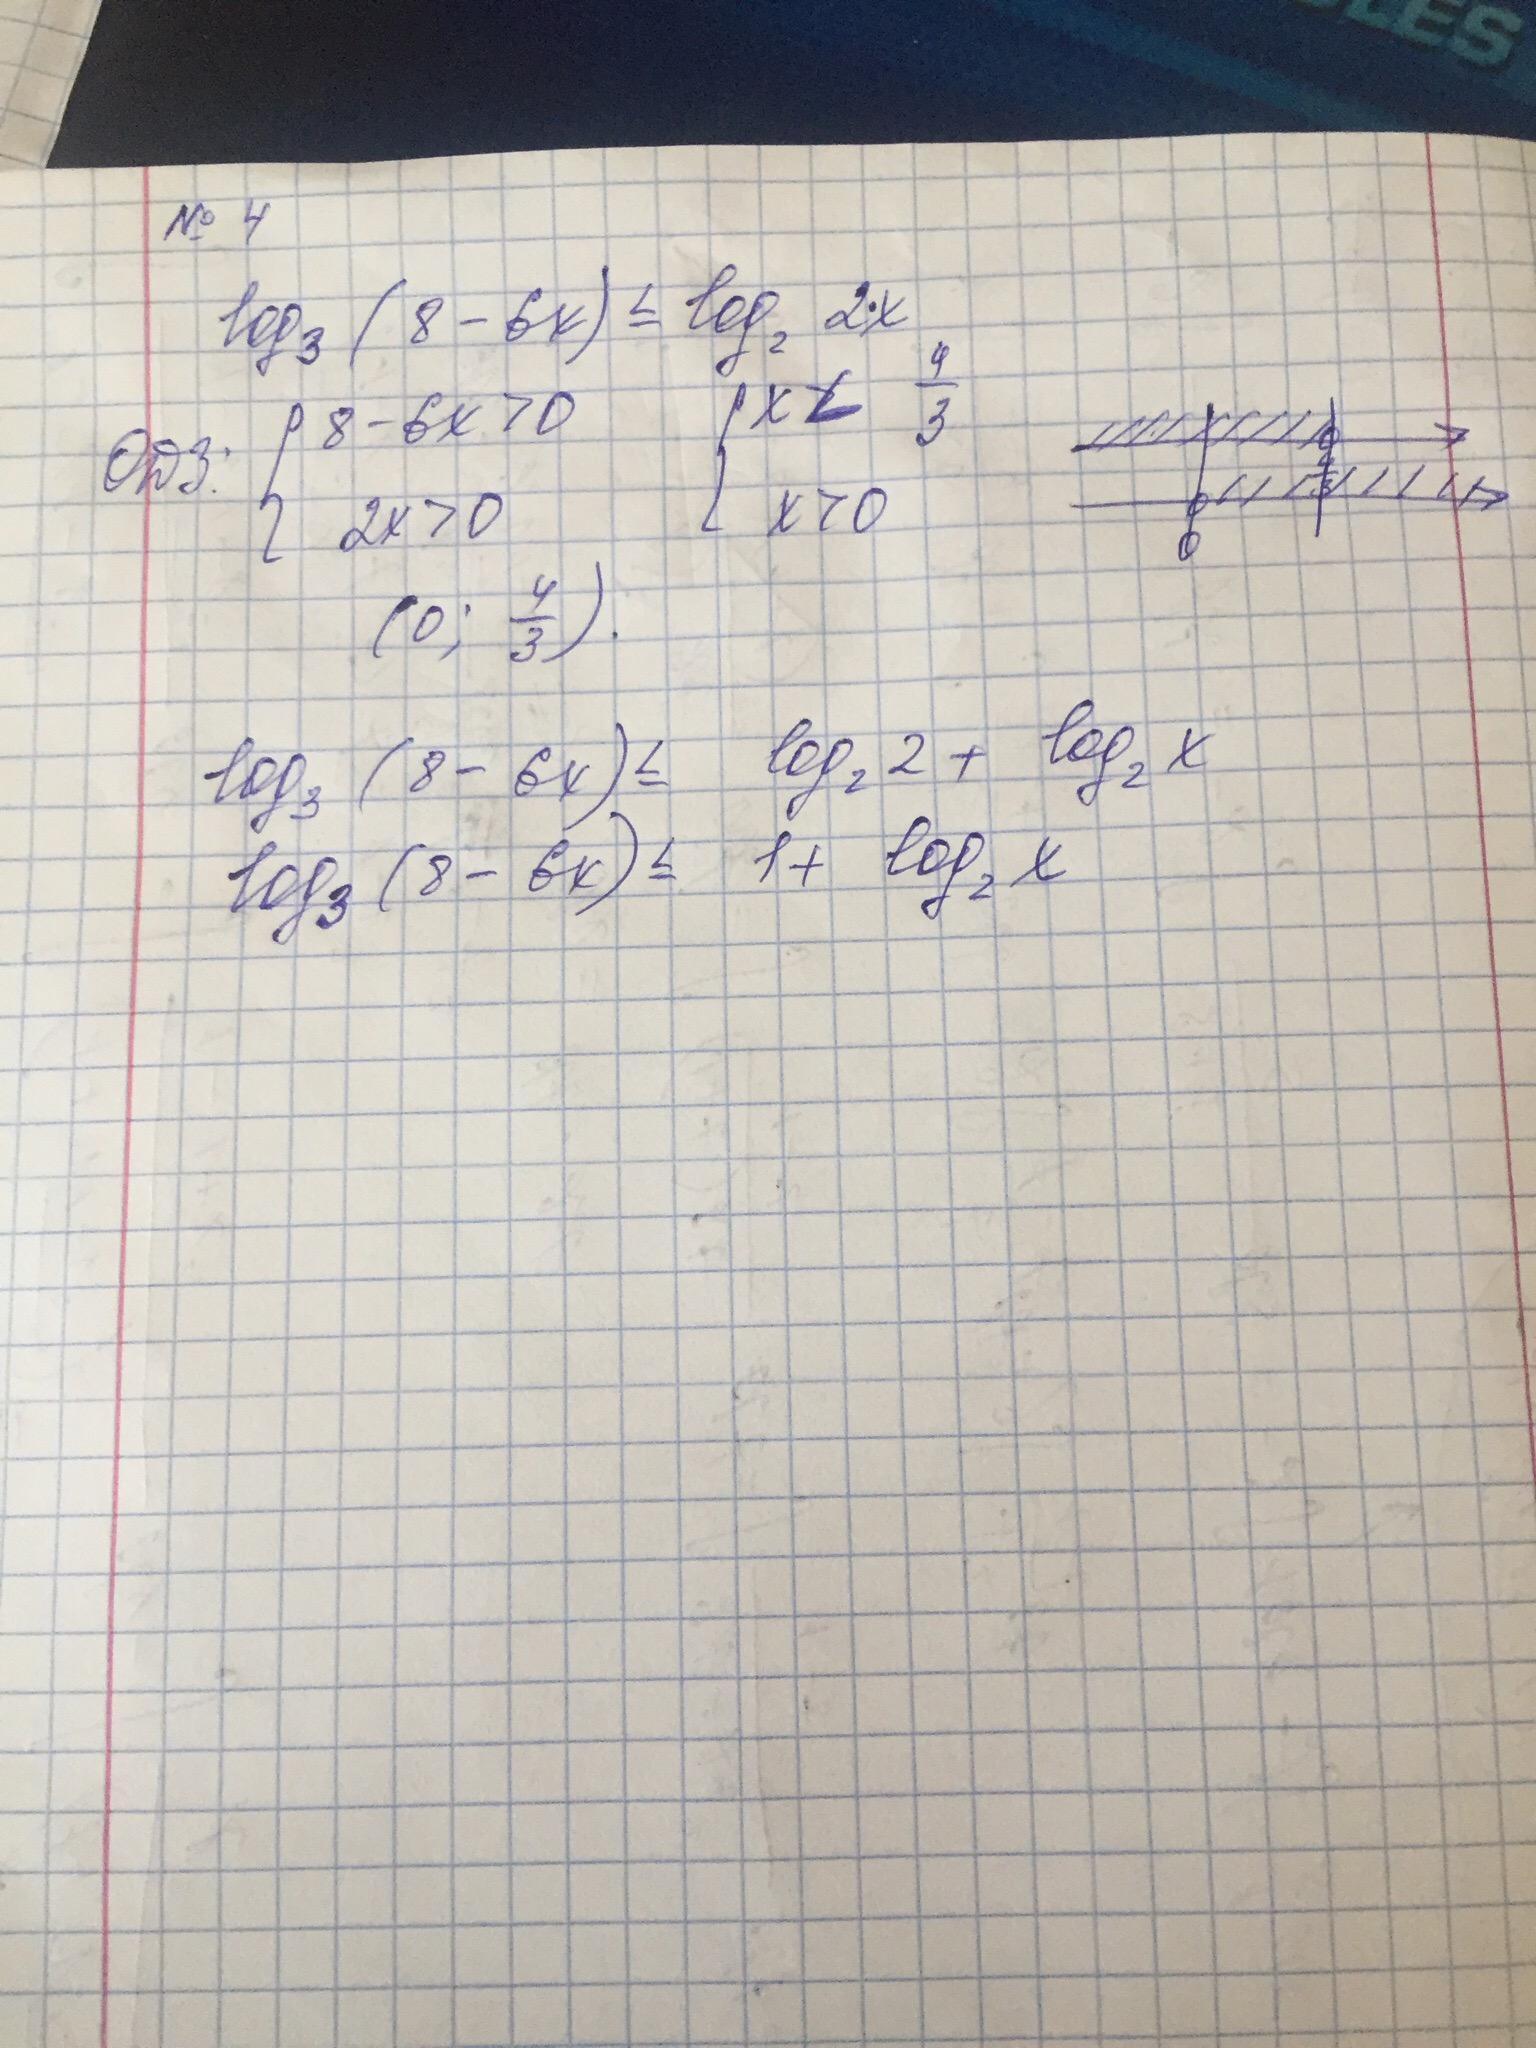 № 4
log₃ (8 - 6x) ≤ log₂ 2·x
ОДЗ: { 8 - 6x > 0 { x < 4/3
2x > 0 x > 0
0
(0; 4/3).
log₃ (8 - 6x) ≤ log₂ 2 + log₂ x
log₃ (8 - 6x) ≤ 1 + log₂ x